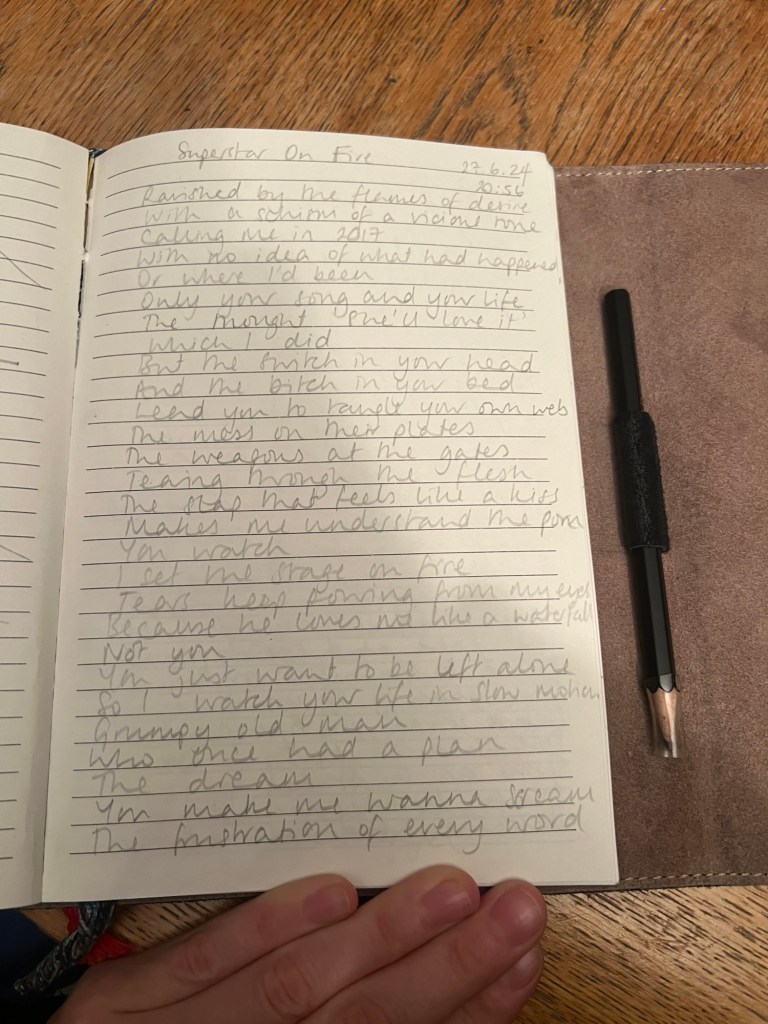 Superstar On Fire
27.6.24
20:56
Ravished by the flames of desire
With a of a vicious tone
Calling me in 2017
With no idea of what had happened
Or where I'd been
Only your song and your life
The thought "she'll love it"
Which I did
But the switch in your head
And the bitch in your bed
Lead you to tangle your own web
The mess on their plates
The weapons at the gates
Tearing through the flesh
The slap that feels like a kiss
Makes me understand the porn
You watch
I set the stage on fire
Tears keep pouring from my eyes
Because he loves me like a waterfall
Not you
You just want to be left alone
So I watch your life in slow motion
Grumpy old man
Who once had a plan
The dream
You make me wanna scream
The frustration of every word